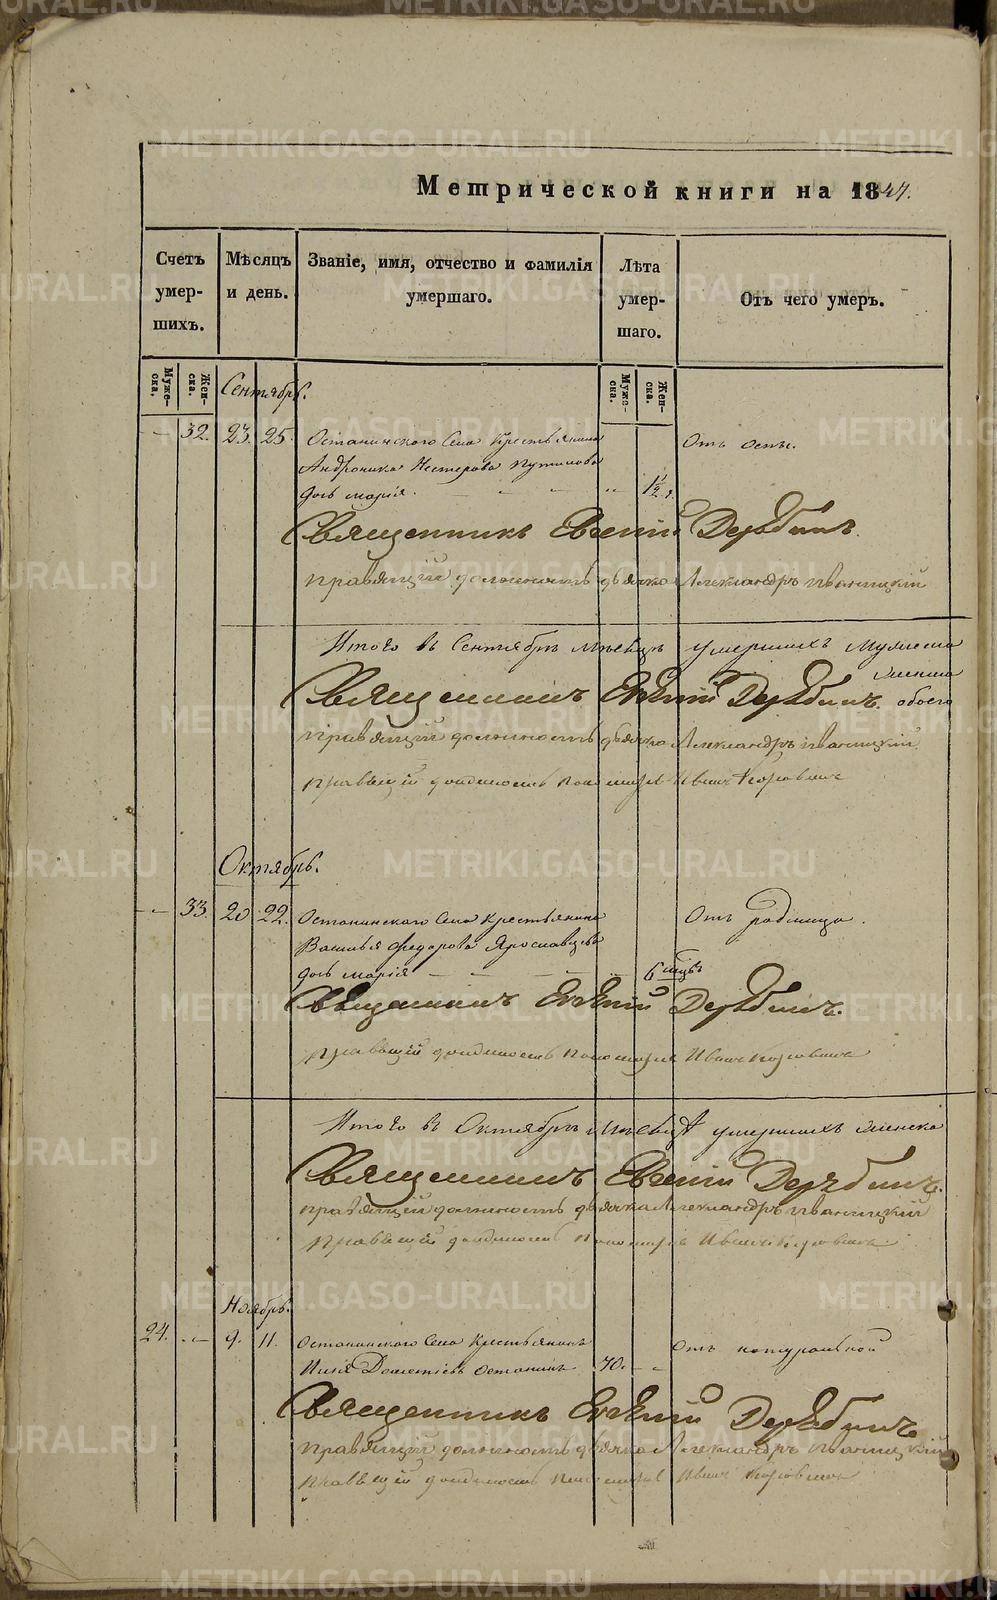 METRIKI.GASO-URAL.RU
Метрической книги на 1847.
Счетъ умер-шихъ.
Мѣсяцъ и день.
Званіе, имя, отчество и фамилія умершаго.
Лѣта умер-шаго.
Отъ чего умеръ.
Муже-ска.
Жен-ска.
Муже-ска.
Жен-ска.
Сентябрь.
32. 23. 25. Останинского Села крестьянина Отъ оспы.
Андроника Нестерова Путилова
дочь марія. 1 1/2 г.
Священникъ Евгеній Дерябинъ.
правящій должность дьячка Александръ Иваницкій
Итого въ Сентябрѣ мѣсяцѣ умершихъ мужеска
женска
Священникъ Евгеній Дерябинъ. обоего
правящій должность дьячка Александръ Иваницкій
правящій должность пономаря Иванъ
Октябрь.
33. 20 22. Останинского Села крестьянина Отъ родимца.
Василья Федорова Ярославцева
дочь марія 6 мцъ
Священникъ Евгеній Дерябинъ.
правящій должность пономаря Иванъ
Итого въ Октябрѣ мѣсяцѣ умершихъ женска
Священникъ Евгеній Дерябинъ.
правящій должность дьячка Александръ Иваницкій
правящій должность пономаря Иванъ
Ноябрь.
24. 9. 11. Останинского Села Крестьянинъ Отъ натуральной
Илія Дометіевъ Останинъ 70.
Священникъ Евгеній Дерябинъ
правящій должность дьячка Александръ Иваницкій
правящій должность пономаря Иванъ